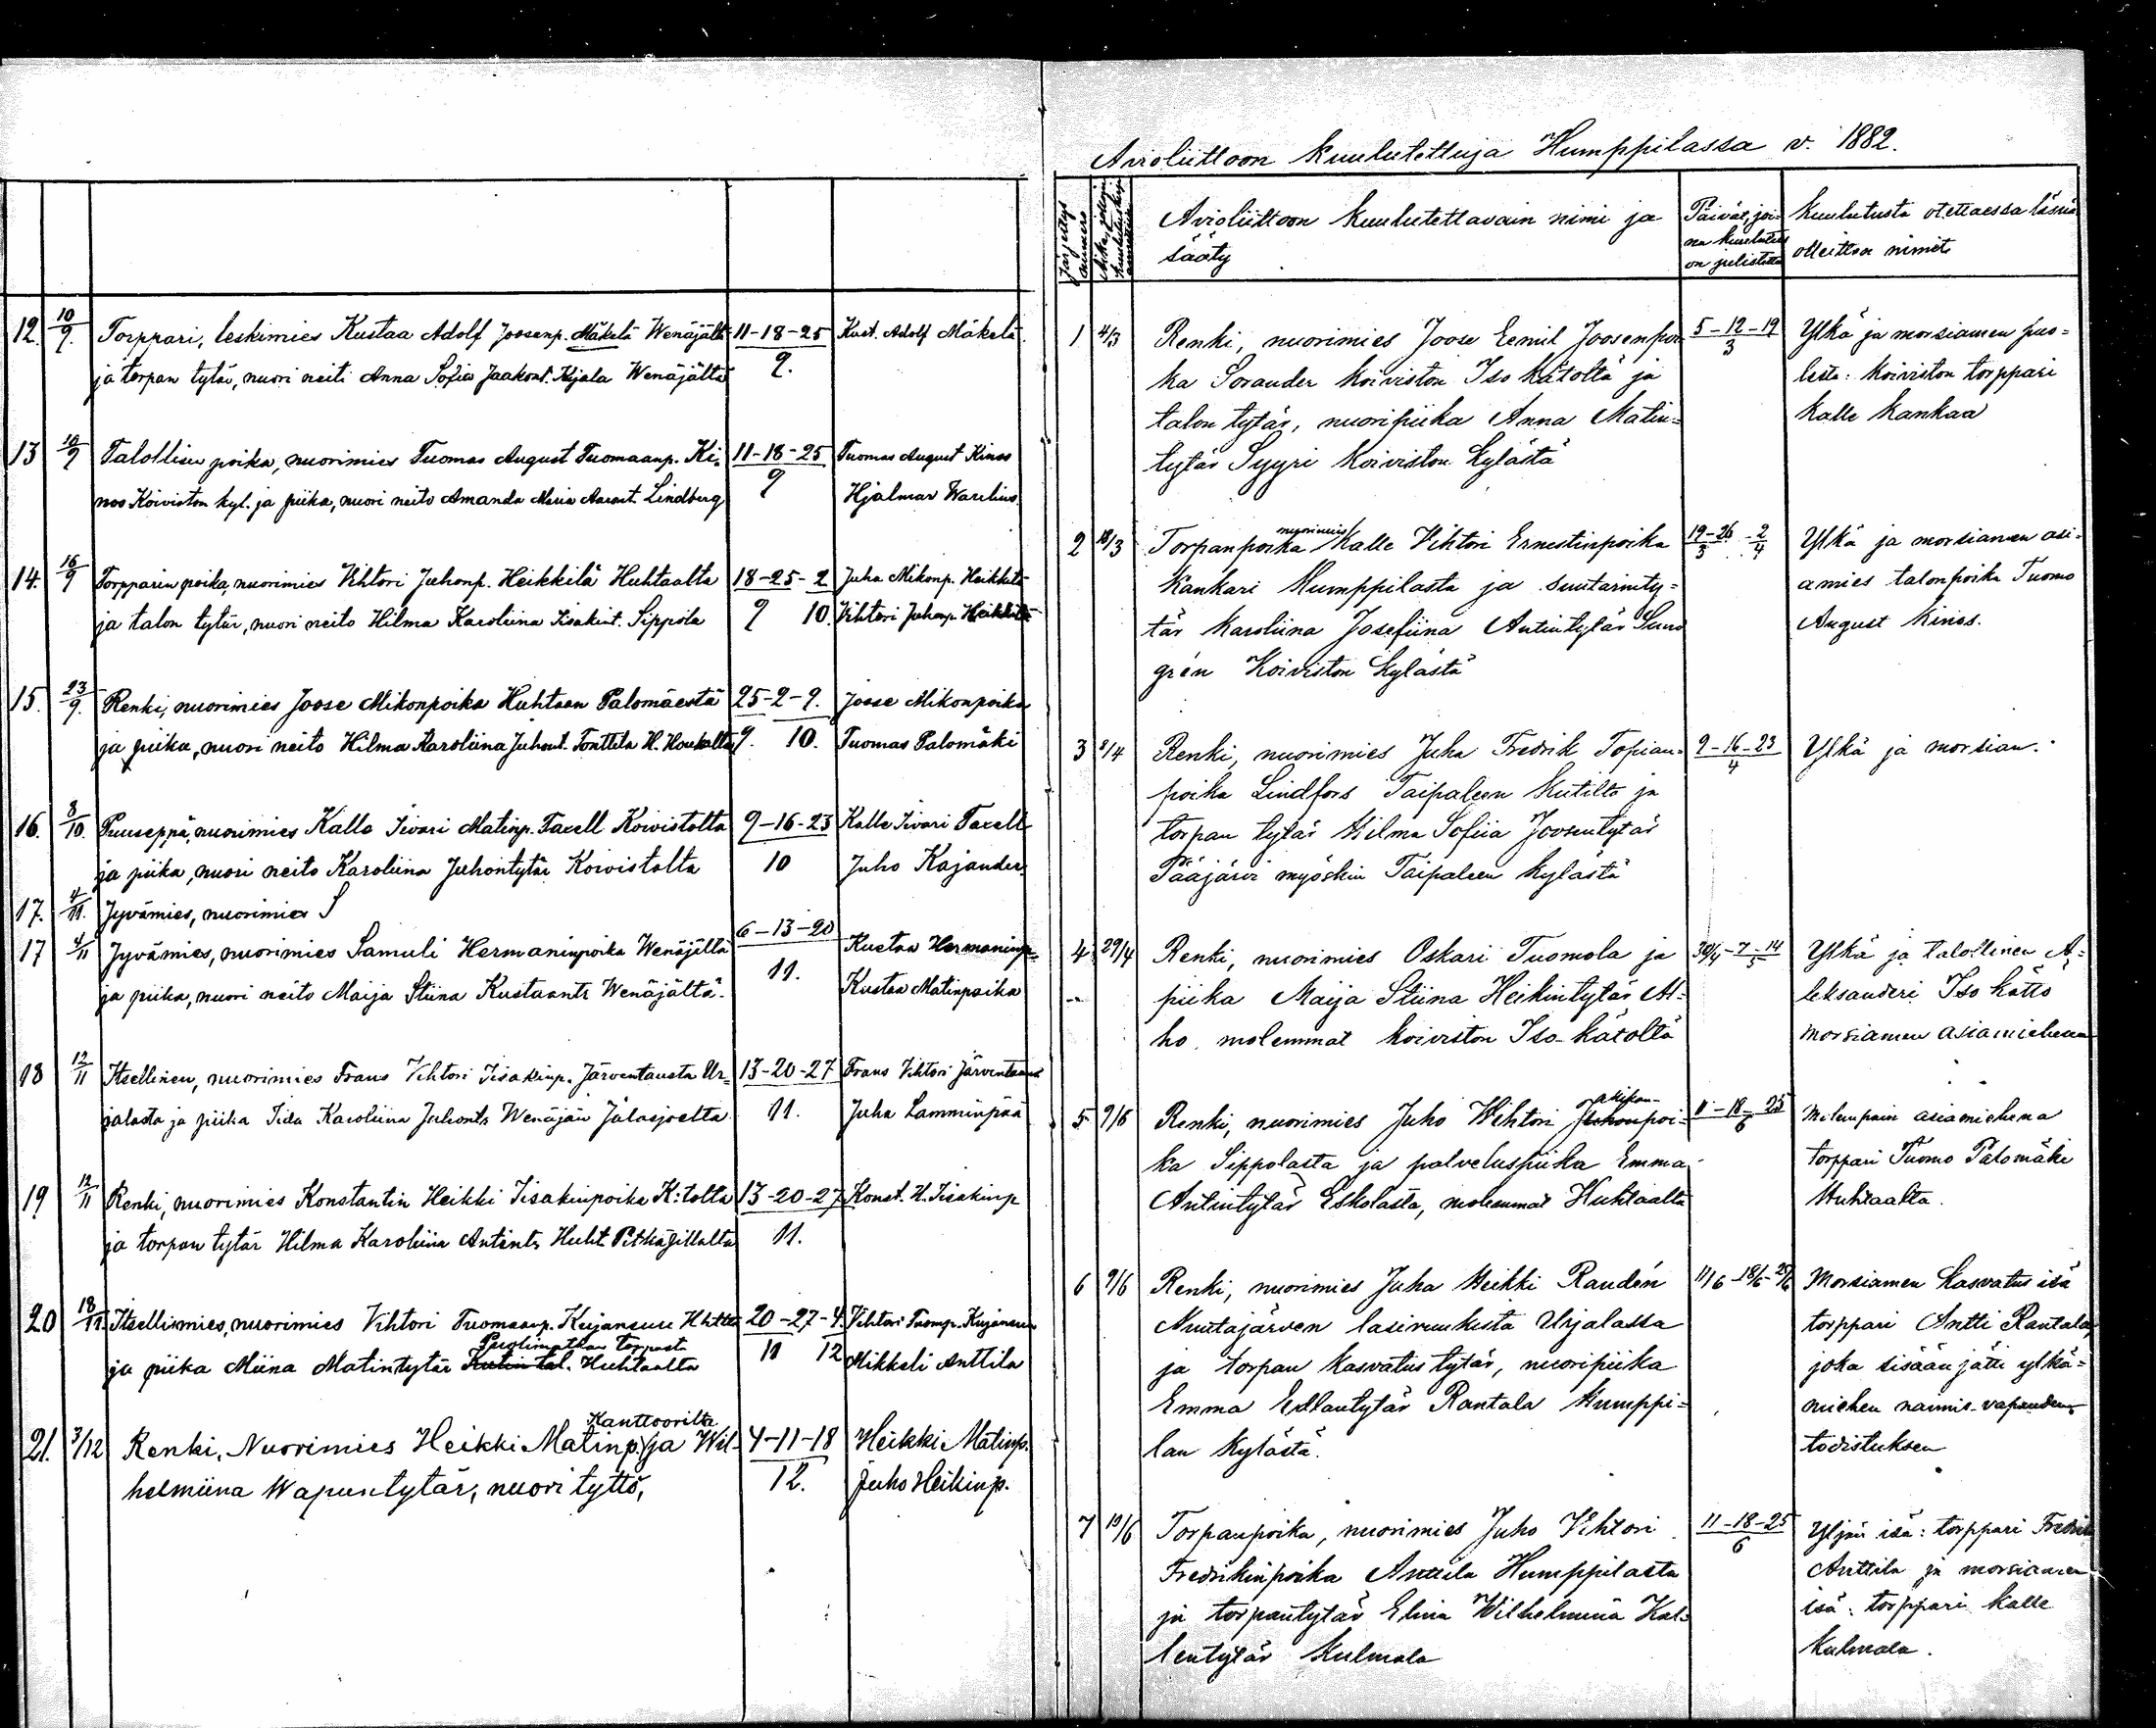 12. 10/9. Torppari, leskimies Kustaa Adolf Joosenp. Mäkelä Wenäjältä 11-18-25 Kust. Adolf Mäkelä
ja torpan tytär, nuori neiti Anna Sofia Jaakont. Wenäjältä 9.
13 10/9 Talollisen poika, nuorimies Tuomas August Tuomaanp. Ki- 11-18-25 Tuomas August Kinos
nos Koiviston kyl. ja piika, nuori neito Amanda Maria Lindberg 9 Hjalmar Warelius
14. 16/9 Torpparin poika, nuorimies Vihtori Juhonp. Heikkilä Huhtaalta 18-25-2 Juha Mikonp. Heikkilä
ja talon tytär, nuori neito Hilma Karoliina Iisakint. Sippola 9 10. Vihtori Juhonp. Heikkilä
15. 23/9. Renki, nuorimies Joose Mikonpoika Huhtaan Palomäestä 25-2-9. Joose Mikonpoika
ja piika, nuori neito Hilma Karoliina Juhont. Tonttila H. 9. 10. Tuomas Palomäki
16. 8/10. Puuseppä, nuorimies Kalle Iivari Matinp. Taxell Koivistolta 9-16-23 Kalle Iivari Taxell
ja piika, nuori neito Karoliina Juhontytär Koivistolta 10 Juho Kajander
17. 4/11. Jyvämies, nuorimies S
17 4/11 Jyvämies, nuorimies Samuli Hermaninpoika Wenäjältä 6-13-20 Kustaa Hermaninp.
ja piika, nuori neito Maija Stiina Kustaantr Wenäjältä. 11. Kustaa Matinpoika
18 12/11 Itsellinen, nuorimies Frans Vihtori Iisakinp. Järventausta Ur- 13-20-27 Frans Vihtori Järventausta
jalasta ja piika Iida Karoliina Juhontr Wenäjän Jalasjoelta 11. Juha Lamminpää
19 12/11 Renki, nuorimies Konstantin Heikki Iisakinpoika K:tolta 13-20-27 Konst. H. Iisakinp
ja torpan tytär Hilma Karoliina Antintr Huht. 11.
20 18/11 Itsellismies, nuorimies Vihtori Tuomaanp. Kujansuu 20-27-4. Vihtori Tuomp. Kujansuu
Puolimatkan torpasta
ja piika Miina Matintytär Huhtaalta 11 12 Mikkeli Anttila
Kanttoorilta
21. 3/12 Renki, Nuorimies Heikki Matinp. ja Wil- 4-11-18 Heikki Matinp.
helmiina Wapuntytär, nuori tyttö, 12. Juho Heikinp.
Avioliittoon kuulutettuja Humppilassa v. 1882.
Järjestys numero
Avioliittoon kuulutettavain nimi ja sääty
Päivät, joina kuulutus on julistettu
Kuulutusta otettaessa läsnä olleitten nimet
1 4/3 Renki, nuorimies Joose Eemil Joosenpoi- 5-12-19/3 Ylkä ja morsiamen puo-
ka Sorander Koiviston Iso Kätoltä ja lesta: Koiviston torppari
talon tytär, nuoripiika Anna Matin- Kalle Kankaa
tytär Syyri Koiviston kylästä
nuorimies
2 18/3 Torpanpoika Kalle Vihtori Ernestinpoika 19-26/3 - 2/4 Ylkä ja morsiamen asi-
Kankari Humppilasta ja suutarinty- amies talonpoika Tuomo
tär Karoliina Josefiina Antintytär Sund August Kinos.
grén Koiviston kylästä
3 8/4 Renki, nuorimies Juha Fredrik Topian- 9-16-23/4 Ylkä ja morsian.
poika Lindfors Taipaleen Kutilta ja
torpan tytär Hilma Sofiia Joosentytär
Pääjärvi myöskin Taipaleen kylästä
4 29/4 Renki, nuorimies Oskari Tuomola ja 30/4-7-14/5 Ylkä ja talollinen A-
piika Maija Stiina Heikintytär Al- leksanderi Iso Kätto
ho molemmat Koiviston Iso-Kätoltä morsiamen asiamiehenä
5 9/6 Renki, nuorimies Juho Wihtori Juhonpoi- 11-18-25/6 Molempain asiamiehenä
ka Sippolasta ja palveluspiika Emma torppari Tuomo Palomäki
Antintytär Eskolasta, molemmat Huhtaalta Huhtaalta.
6 9/6 Renki, nuorimies Juha Heikki Raudén 11/6-18/6-25/6 Morsiamen kasvatus isä
Nuutajärven lasiruukista Urjalassa torppari Antti Rantala
ja torpan kasvatus tytär, nuoripiika joka sisään jätti ylkä-
Emma Rantala Humppi- miehen naimis-vapauden
lan kylästä. todistuksen
7 10/6 Torpanpoika, nuorimies Juho Vihtori 11-18-25/6 Yljän isä: torppari Fredrik
Fredrikinpoika Anttila Humppilasta Anttila ja morsiamen
ja torpantytär Elina Wilhelmiina Kal- isä: torppari Kalle
lentytär Kulmala Kulmala.